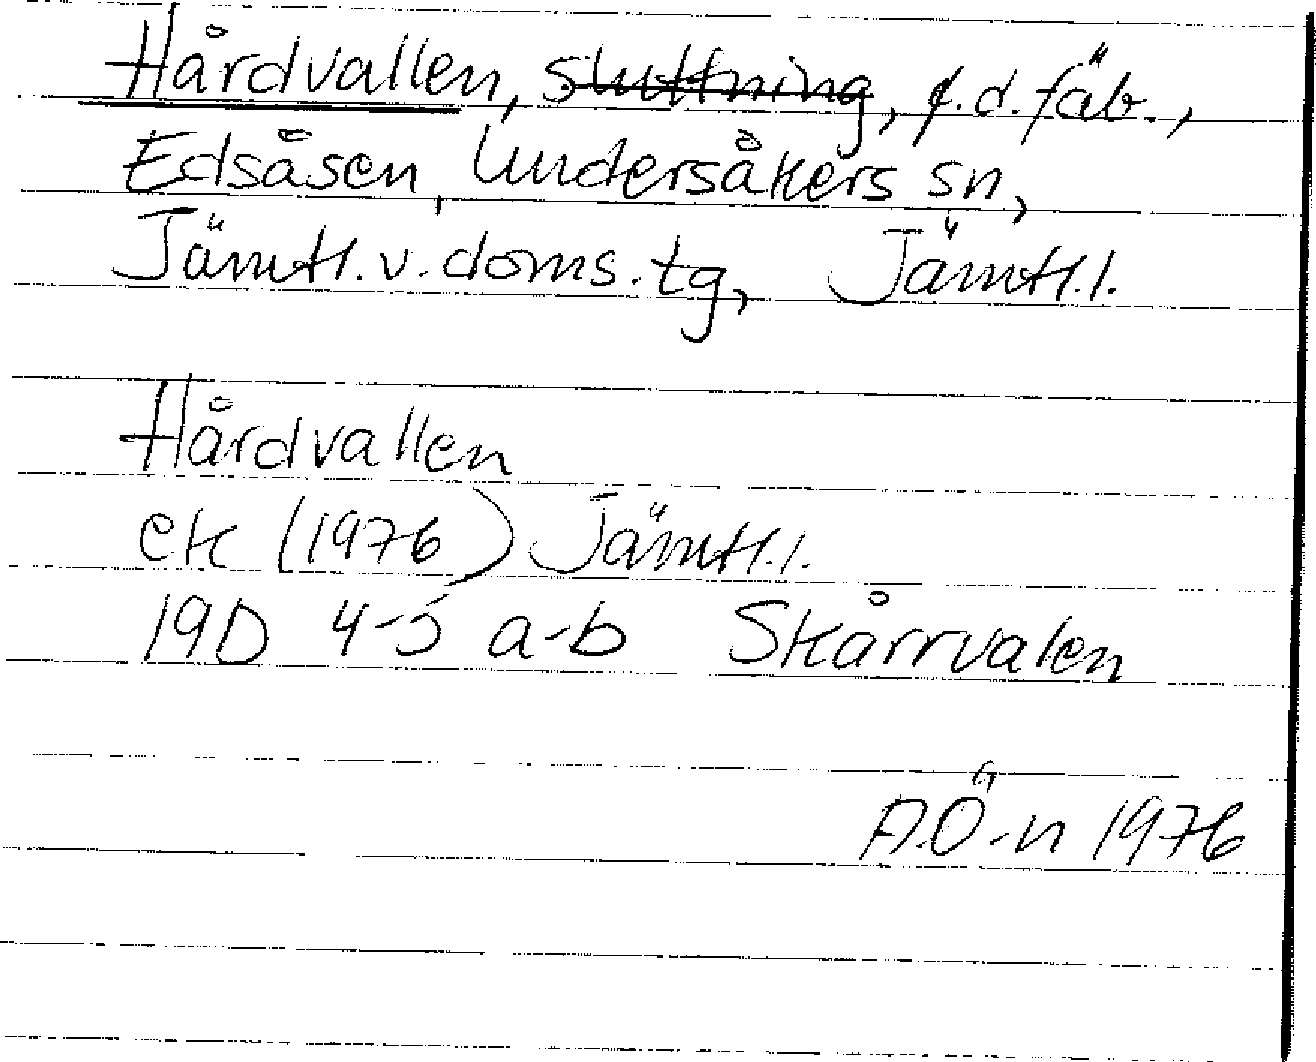 Hårdvallen, sluttning, f.d. fäb.,
Edsåsen, Undersåkers sn,
Jämtl. v. doms. tg, Jämtl. l.
Hårdvallen
ek (1976) Jämtl. l.
19D 4-5 a-b Skårrvalen
A.Ö-n 1976